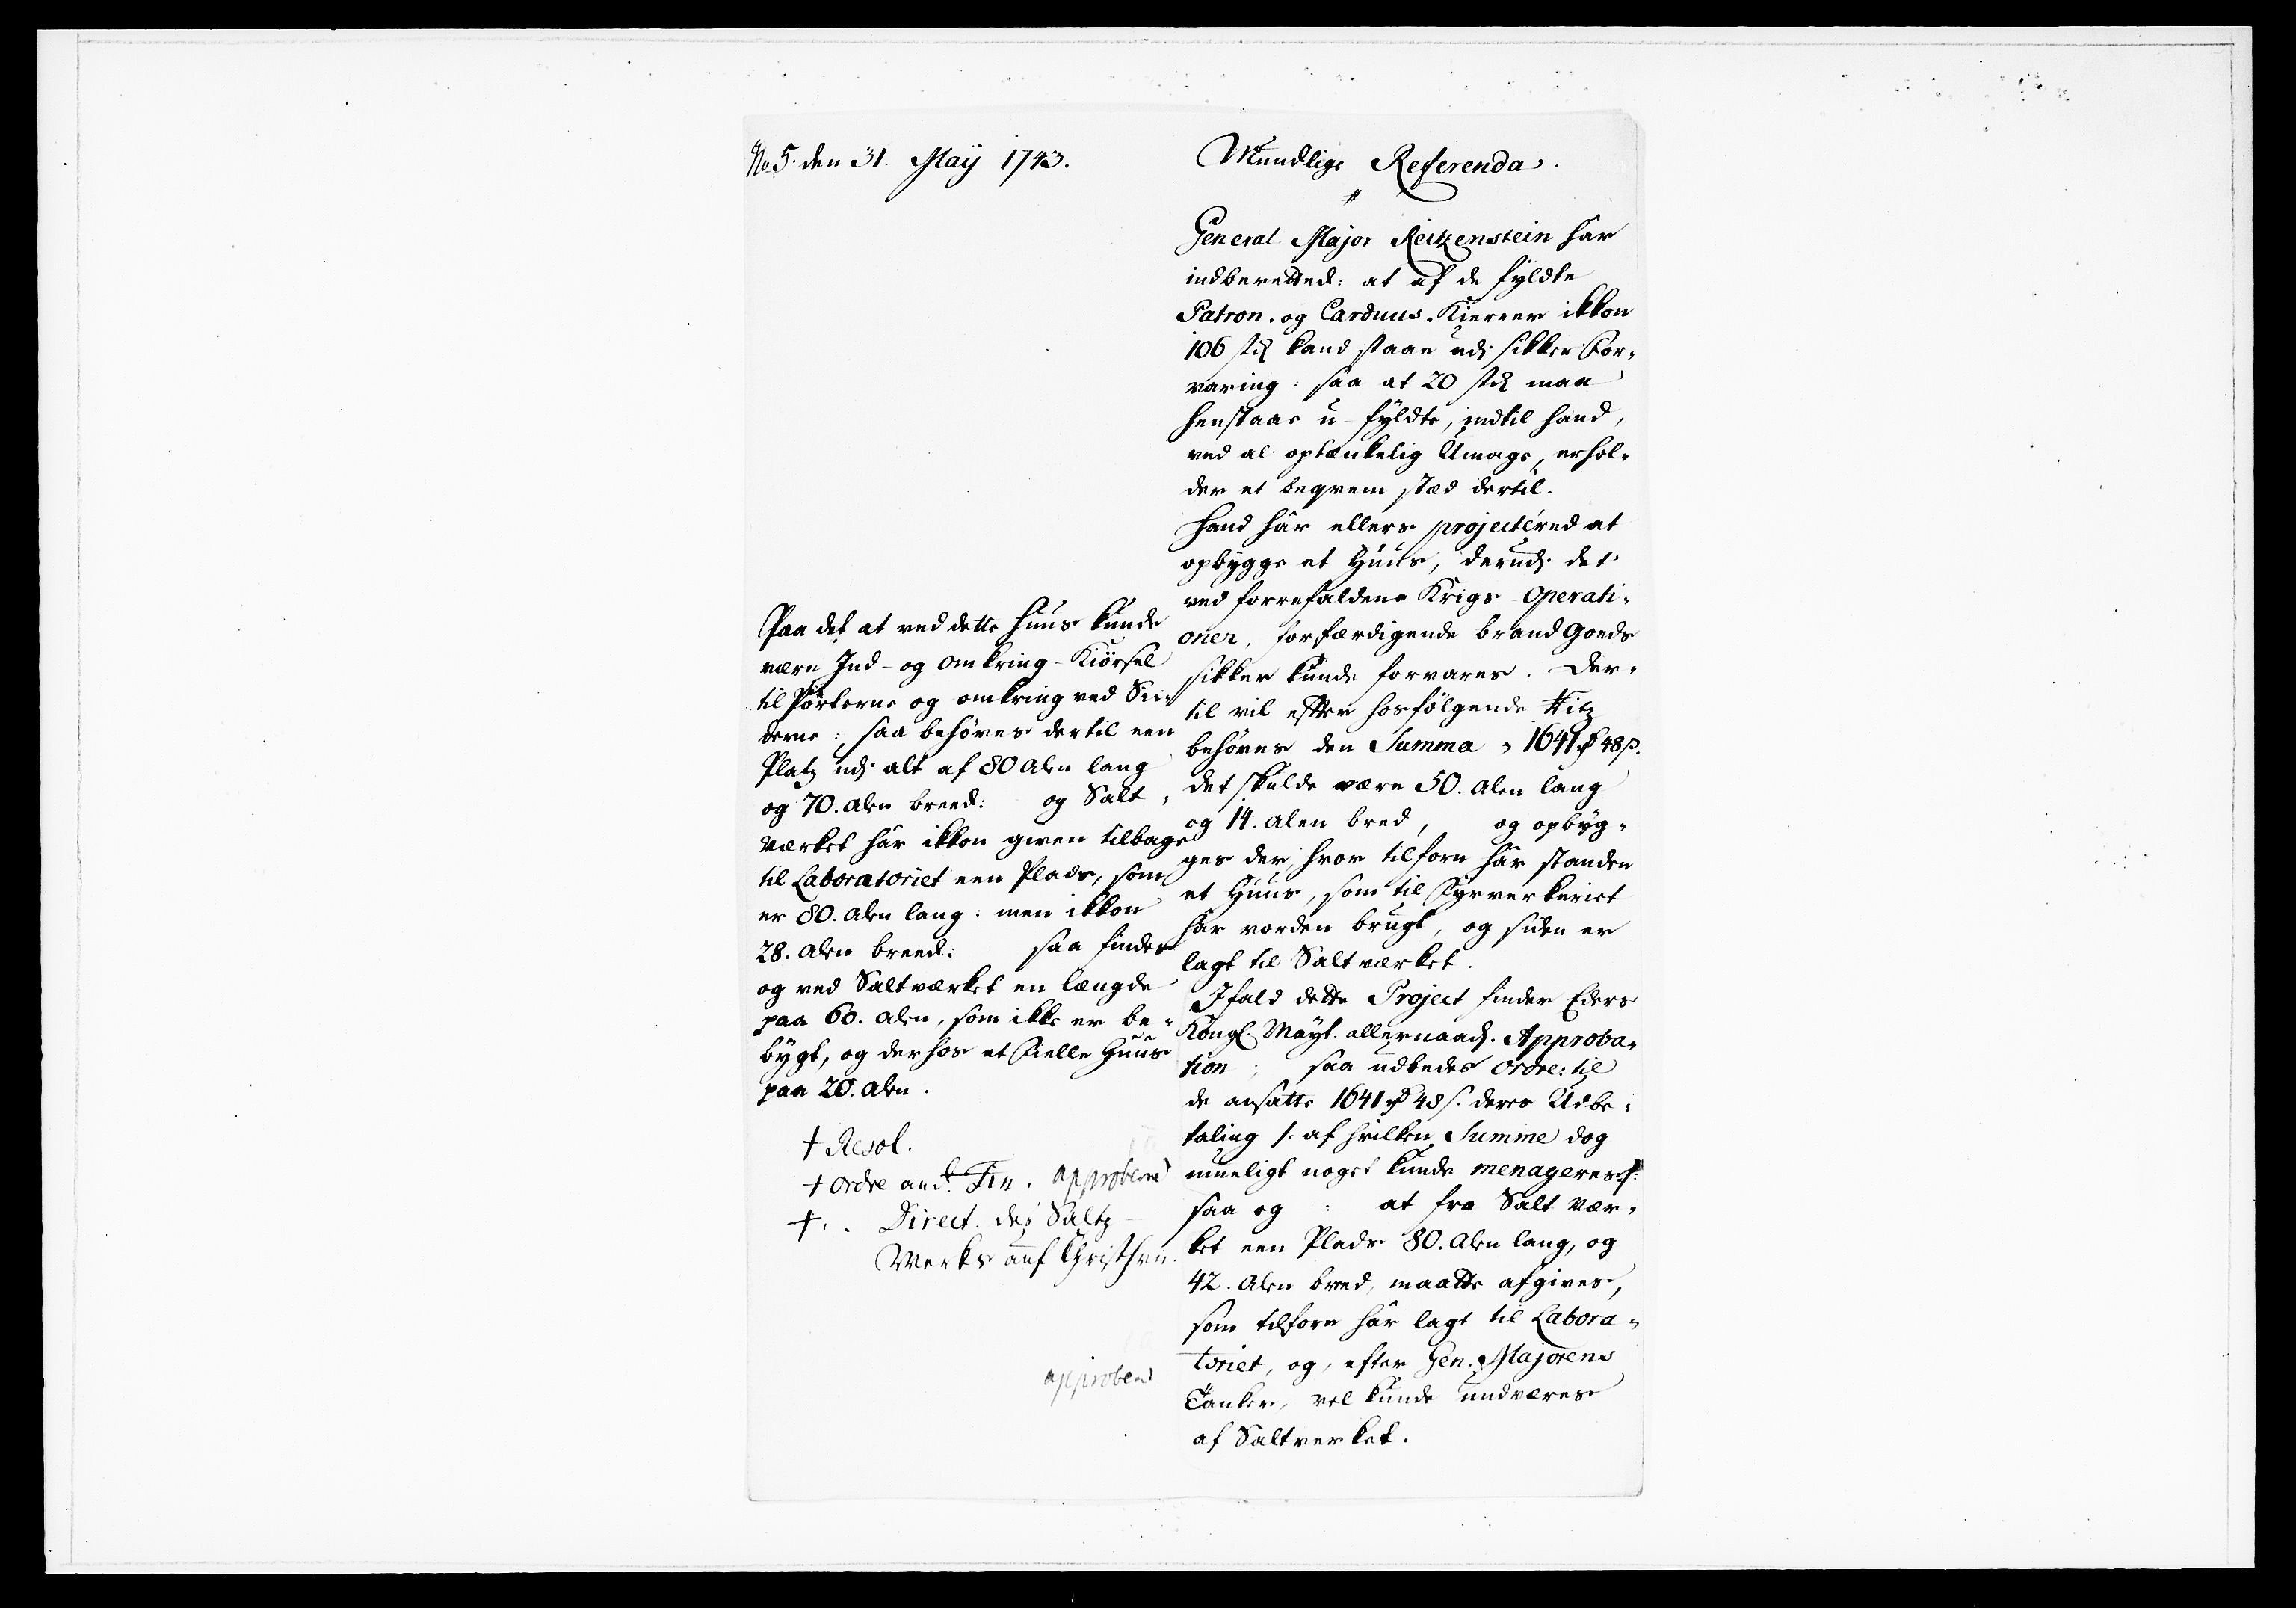 No 5. den 31. Maÿ 1743.
Mundlige Referenda.
General Major Reitzenstein har
indberetted: at af de fyldte
Patron- og Carduus-Kierrer ikkon
106 stk kand staae udj sikker For-
varing: saa at 20 stk maa
henstaae u-fyldte, indtil hand,
ved al optænkelig Umage, erhol-
der et beqvem stæd dertil.
Hand har ellers projectéred at
opbygge et Huus, derudj det
ved forrefaldene Krigs-Operati-
oner, forfærdigende brand Goeds
sikker kunde forvares. Der-
til vil efter hosfölgende Ritz
behöves den Summa, 1641 rd 48 s.
det skulde være 50. Alen lang
og 14. Alen bred, og opbyg-
ges der, hvor tilforn har standen
et Huus, som til Fyrverkeriet
har vorden brugt, og siden er
lagt til Saltværket.
Ifald dette Project finder Eders
Kongl. Mayt. allernaad. Approba-
tion; saa udbedes Ordre: til
de ansatte 1641 rd 48 s. deres Udbe-
taling /: af hvilken Summe dog
mueligt noget kunde menageres :/
saa og : at fra Salt vær-
ket een Plads 80. Alen lang, og
42. Alen bred, maatte afgives,
som tilforn har lagt til Labora-
toriet, og, efter Gen. Majorens
Tanker, vel kunde undværes
af Saltverket.
Paa det at ved dette Huus kunde
være Ind- og omkring-Kiörsel
til Porterne og omkring ved Sii-
derne: saa behöves dertil een
Platz udj alt af 80 Alen lang
og 70. Alen breed: og Salt-
værket har ikkon given tilbage
til Laboratoriet een Plads, som
er 80. Alen lang: men ikkon
28. Alen breed: saa findes
og ved Saltværket en længde
paa 60. Alen, som ikke er be-
bygt, og derhos et Fielle Huus
paa 20. Alen.
† Resol.
† Ordre an d. Fin. approbere
† . . Direct. des Saltz
Werks auf Christhvn.
approbere